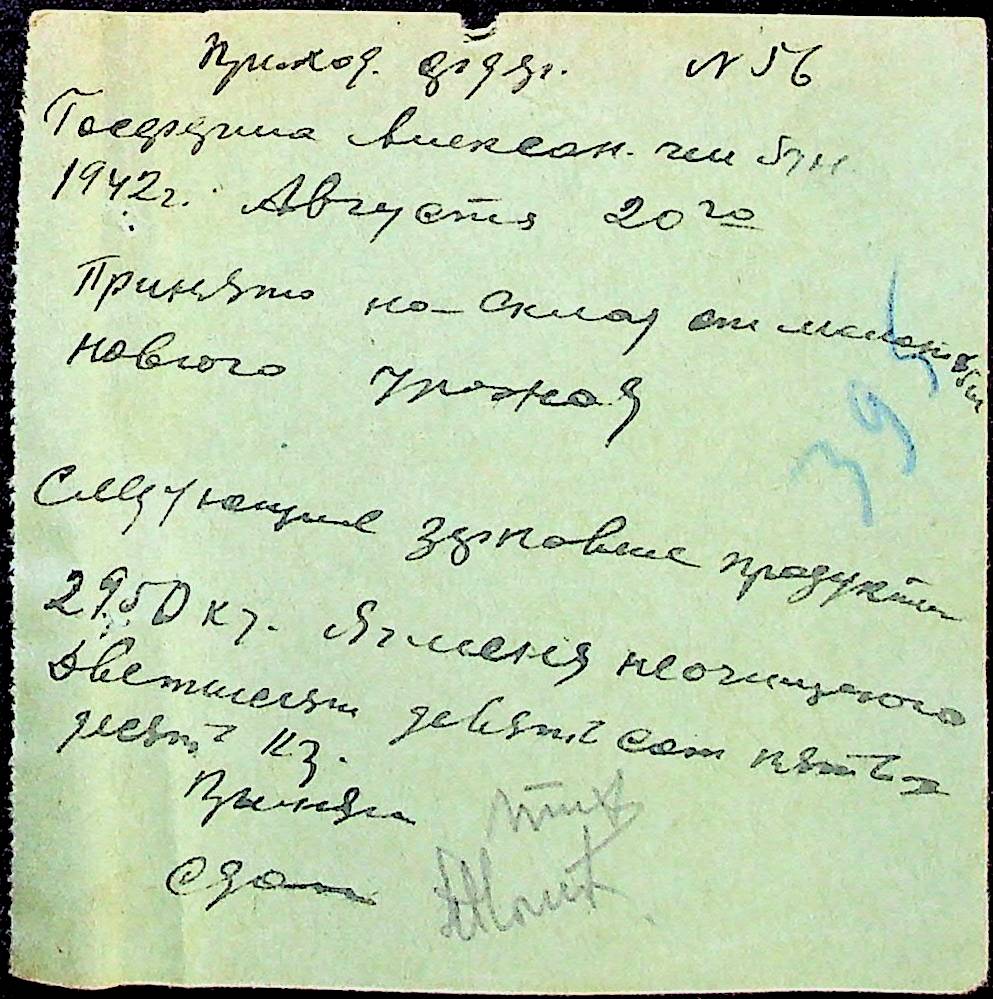 Приход. ордер. N 56
Госдядина Алексан.
1942г. Августа 20го
Принято на склад от молотьбы
нового урожая
Следующие зерновые продукты
2950 кг. Ячменя неочищеного
Дветысячи девятьсот пятьде
десят кг.
Принял
Сдал
395